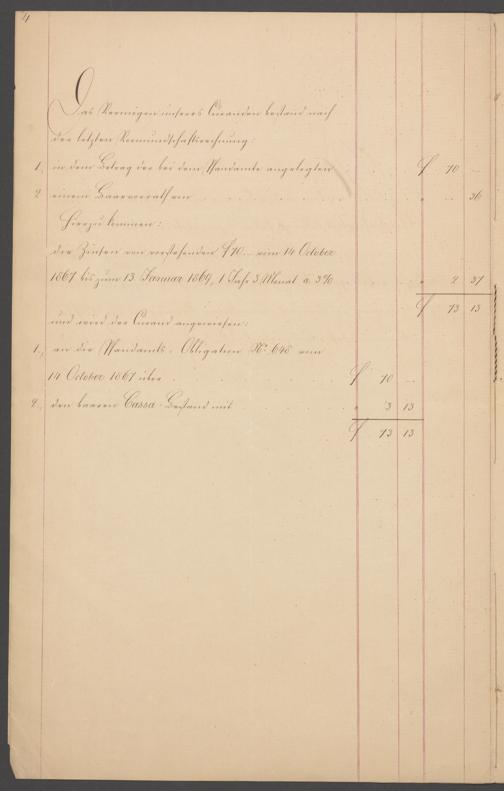 4
Das Vermögen unseres Curanden bestand nach
der letzten Vormundschaftsrechnung:
1, in dem Betrag der bei dem Pfandamte angelegten f 70 ..
2 einem Baarvorrath von " .. 36
Hierzu kommen:
die Zinsen von vorstehenden f 70 .. vom 14 October
1867 bis zum 13 Januar 1869, 1 Jahr 3 Monat a 3% " 2 37
f 73 13
und wird der Curand angewiesen:
1., an die Pfandamts-Obligation No 648 vom
14 October 1867 über f 70 ..
2., den baaren Cassa-Bestand mit " 3 13
f 73 13